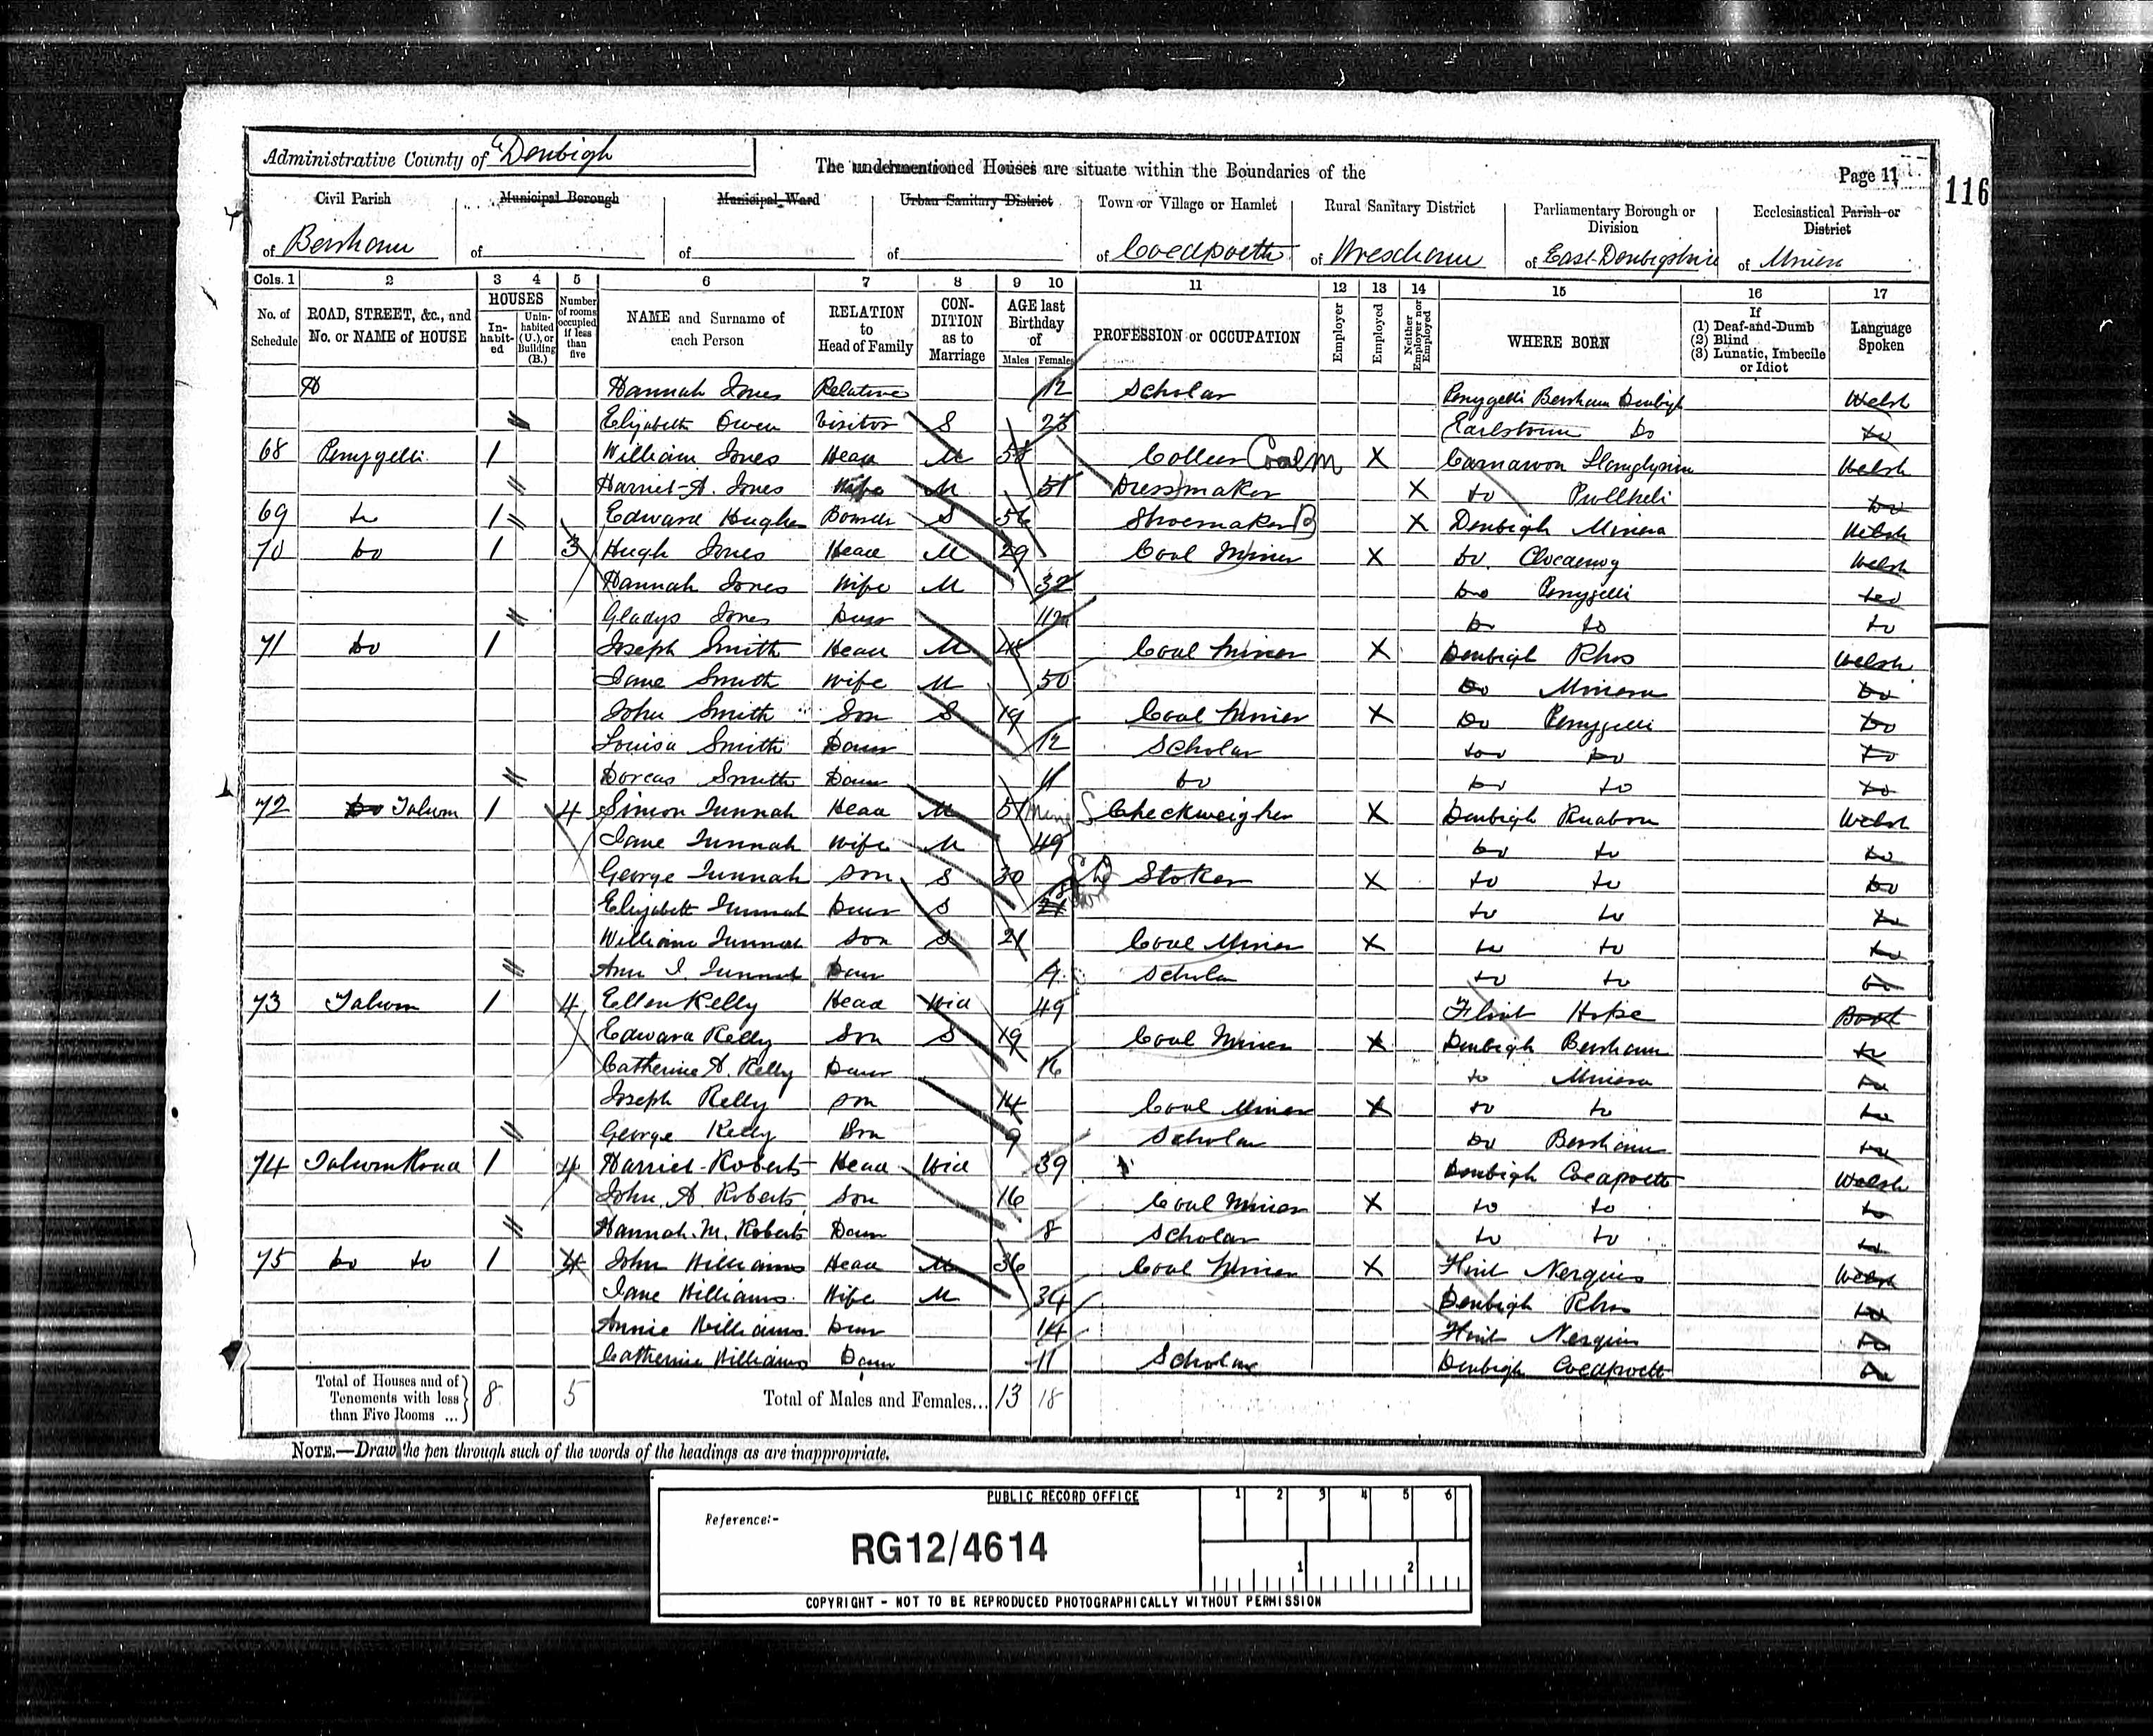 Administrative County of Denbigh
The undermentioned Houses are situate within the Boundaries of the
Page 11
116
Civil Parish
Municipal Borough
Municipal Ward
Urban Sanitary District
Town or Village or Hamlet
Rural Sanitary District
Parliamentary Borough or Division
Ecclesiastical Parish or District
of Bersham
of
of
of
of Coedpoeth
of Wrexham
of East Denbigshire
of Minera
Cols. 1 2 3 4 5 6 7 8 9 10 11 12 13 14 15 16 17
No. of Schedule
ROAD, STREET, &c., and No. or NAME of HOUSE
HOUSES
In-habit-ed
Unin-habited (U.), or Building (B.)
Number of rooms occupied if less than five
NAME and Surname of each Person
RELATION to Head of Family
CON-DITION as to Marriage
AGE last Birthday of
Males Females
PROFESSION or OCCUPATION
Employer
Employed
Neither Employer nor Employed
WHERE BORN
If (1) Deaf-and-Dumb (2) Blind (3) Lunatic, Imbecile or Idiot
Language Spoken
Hannah Jones Relative 12 Scholar Penygelli Bersham Denbigh Welsh
Elizabeth Owen Visitor S 23 Earlstown Do Do
68 Penygelli 1 William Jones Head M 58 Collier Coal M X Carnarvon Welsh
Harriet A. Jones Wife M 51 Dressmaker X Do Pwllheli Do
69 Do 1 Edward Hughes S 56 Shoemaker X Denbigh Minera Welsh
70 Do 1 3 Hugh Jones Head M 29 Coal Miner X Do Clocaenog Welsh
Hannah Jones Wife M 32 Do Penygelli Do
Gladys Jones Daur Do Do Do
71 Do 1 Joseph Smith Head M 48 Coal Miner X Denbigh Rhos Welsh
Jane Smith Wife M 50 Do Minera Do
John Smith Son S 19 Coal Miner X Do Penygelli Do
Louisa Smith Daur 12 Scholar Do Do Do
Dorcas Smith Daur 11 Do Do Do Do
72 Do Talwrn 1 4 Simon Tunnah Head M 51 Checkweigher X Denbigh Ruabon Welsh
Jane Tunnah Wife M 49 Do Do Do
George Tunnah Son S 30 Stoker X Do Do Do
Elizabeth Tunnah Daur S Do Do Do
William Tunnah Son S 21 Coal Miner X Do Do Do
Ann J. Tunnah Daur 9 Scholar Do Do Do
73 Talwrn 1 4 Ellen Kelly Head Wid 49 Flint Hope Both
Edward Kelly Son S 19 Coal Miner X Denbigh Bersham Do
Catherine A. Kelly Daur 16 Do Minera Do
Joseph Kelly Son 14 Coal Miner X Do Do Do
George Kelly Son 9 Scholar Do Bersham Do
74 Talwrn Road 1 4 Harriet Roberts Head Wid 39 Denbigh Coedpoeth Welsh
John A. Roberts Son 16 Coal Miner X Do Do Do
Hannah M. Roberts Daur 8 Scholar Do Do Do
75 Do Do 1 4 John Williams Head M 36 Coal Miner X Flint Nerquis Welsh
Jane Williams Wife M 34 Denbigh Rhos Do
Annie Williams Daur 14 Flint Nerquis Do
Catherine Williams Daur 11 Scholar Denbigh Coedpoeth Do
Total of Houses and of Tenements with less than Five Rooms ... 8 5 Total of Males and Females... 13 18
NOTE.—Draw the pen through such of the words of the headings as are inappropriate.
PUBLIC RECORD OFFICE
1 2 3 4 5 6
Reference:-
RG12/4614
1 2
COPYRIGHT - NOT TO BE REPRODUCED PHOTOGRAPHICALLY WITHOUT PERMISSION